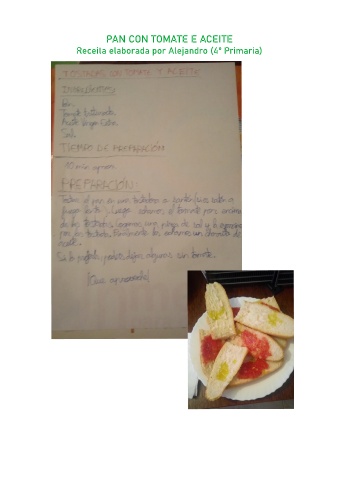 PAN CON TOMATE E ACEITE
Receita elaborada por Alejandro (4º Primaria)
TOSTADAS CON TOMATE Y ACEITE
INGREDIENTES:
Pan
Tomate
Aceite Virgen Extra
Sal
TIEMPO DE PREPARACIÓN
10 min aprox
PREPARACIÓN:
Tostar el pan en una tostadora o
fuego lento). Luego echamos el tomate por encima
de las tostadas, una pizca de sal y lo
por las tostadas. Finalmente le echamos un chorrito de
aceite.
Si lo podéis dejar algunas sin tomate.
¡Que aproveche!